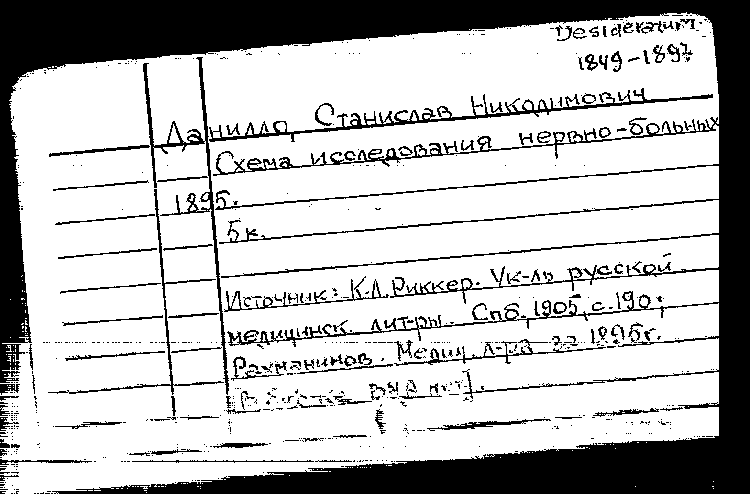 Desideratum.
1849-1897
Данилло, Станислав Никодимович
Схема исследования нервно-больных
1895.
5 к.
Источник: К.Л.Риккер. Ук-ль русской
медицинск. лит-ры. Спб, 1905, с.190;
Рахманинов. Медиц. л-ра за 1895г.